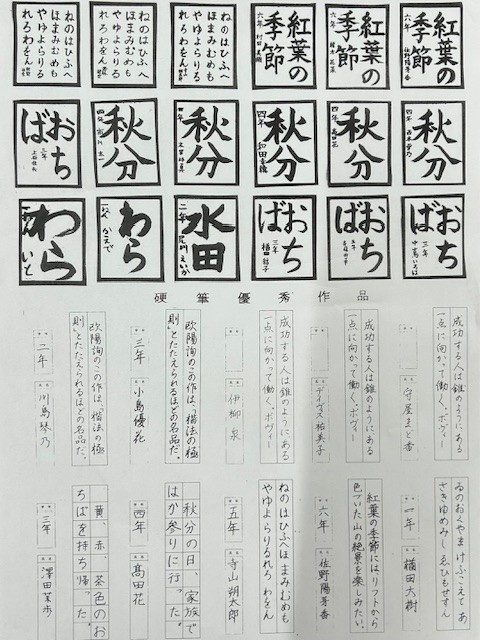 紅葉の
季節
六年
紅葉の
季節
六年
紅葉の
季節
六年
ねのはひふへ
ほまみむめも
やゆよらりる
れろわをん
ねのはひふへ
ほまみむめも
やゆよらりる
れろわをん
ねのはひふへ
ほまみむめも
やゆよらりる
れろわをん
秋分
四年
秋分
四年
秋分
四年
秋分
秋分
四年
おち
ば
三年
おち
ば
三年
おち
ば
おち
ば
三年
水田
二年
わら
かえで
わら
硬筆優秀作品
成功する人は錐のようにある
一点に向かって働く。ボヴィー
守屋まど香
成功する人は錐のようにある
一点に向かって働く。ボヴィー
成功する人は錐のようにある
一点に向かって働く。ボヴィー
伊柳泉
欧陽詢のこの作は、「楷法の極
則」とたたえられるほどの名品だ。
三年
小島優花
欧陽詢のこの作は、「楷法の極
則」とたたえられるほどの名品だ。
二年
川島琴乃
ゐのおくやまけふこえてあ
さきゆめみしゑひもせすん
一年
横田大樹
紅葉の季節にはリフトから
色づいた山の絶景を楽しみたい。
六年
佐野陽芳香
ねのはひふへほまみむめも
やゆよらりるれろわをん
五年
寺山朔太郎
秋分の日、家族で
はか参りに行った。
四年
髙田花
黄、赤、茶色のお
ちばを持ち帰った。
三年
澤田茉歩